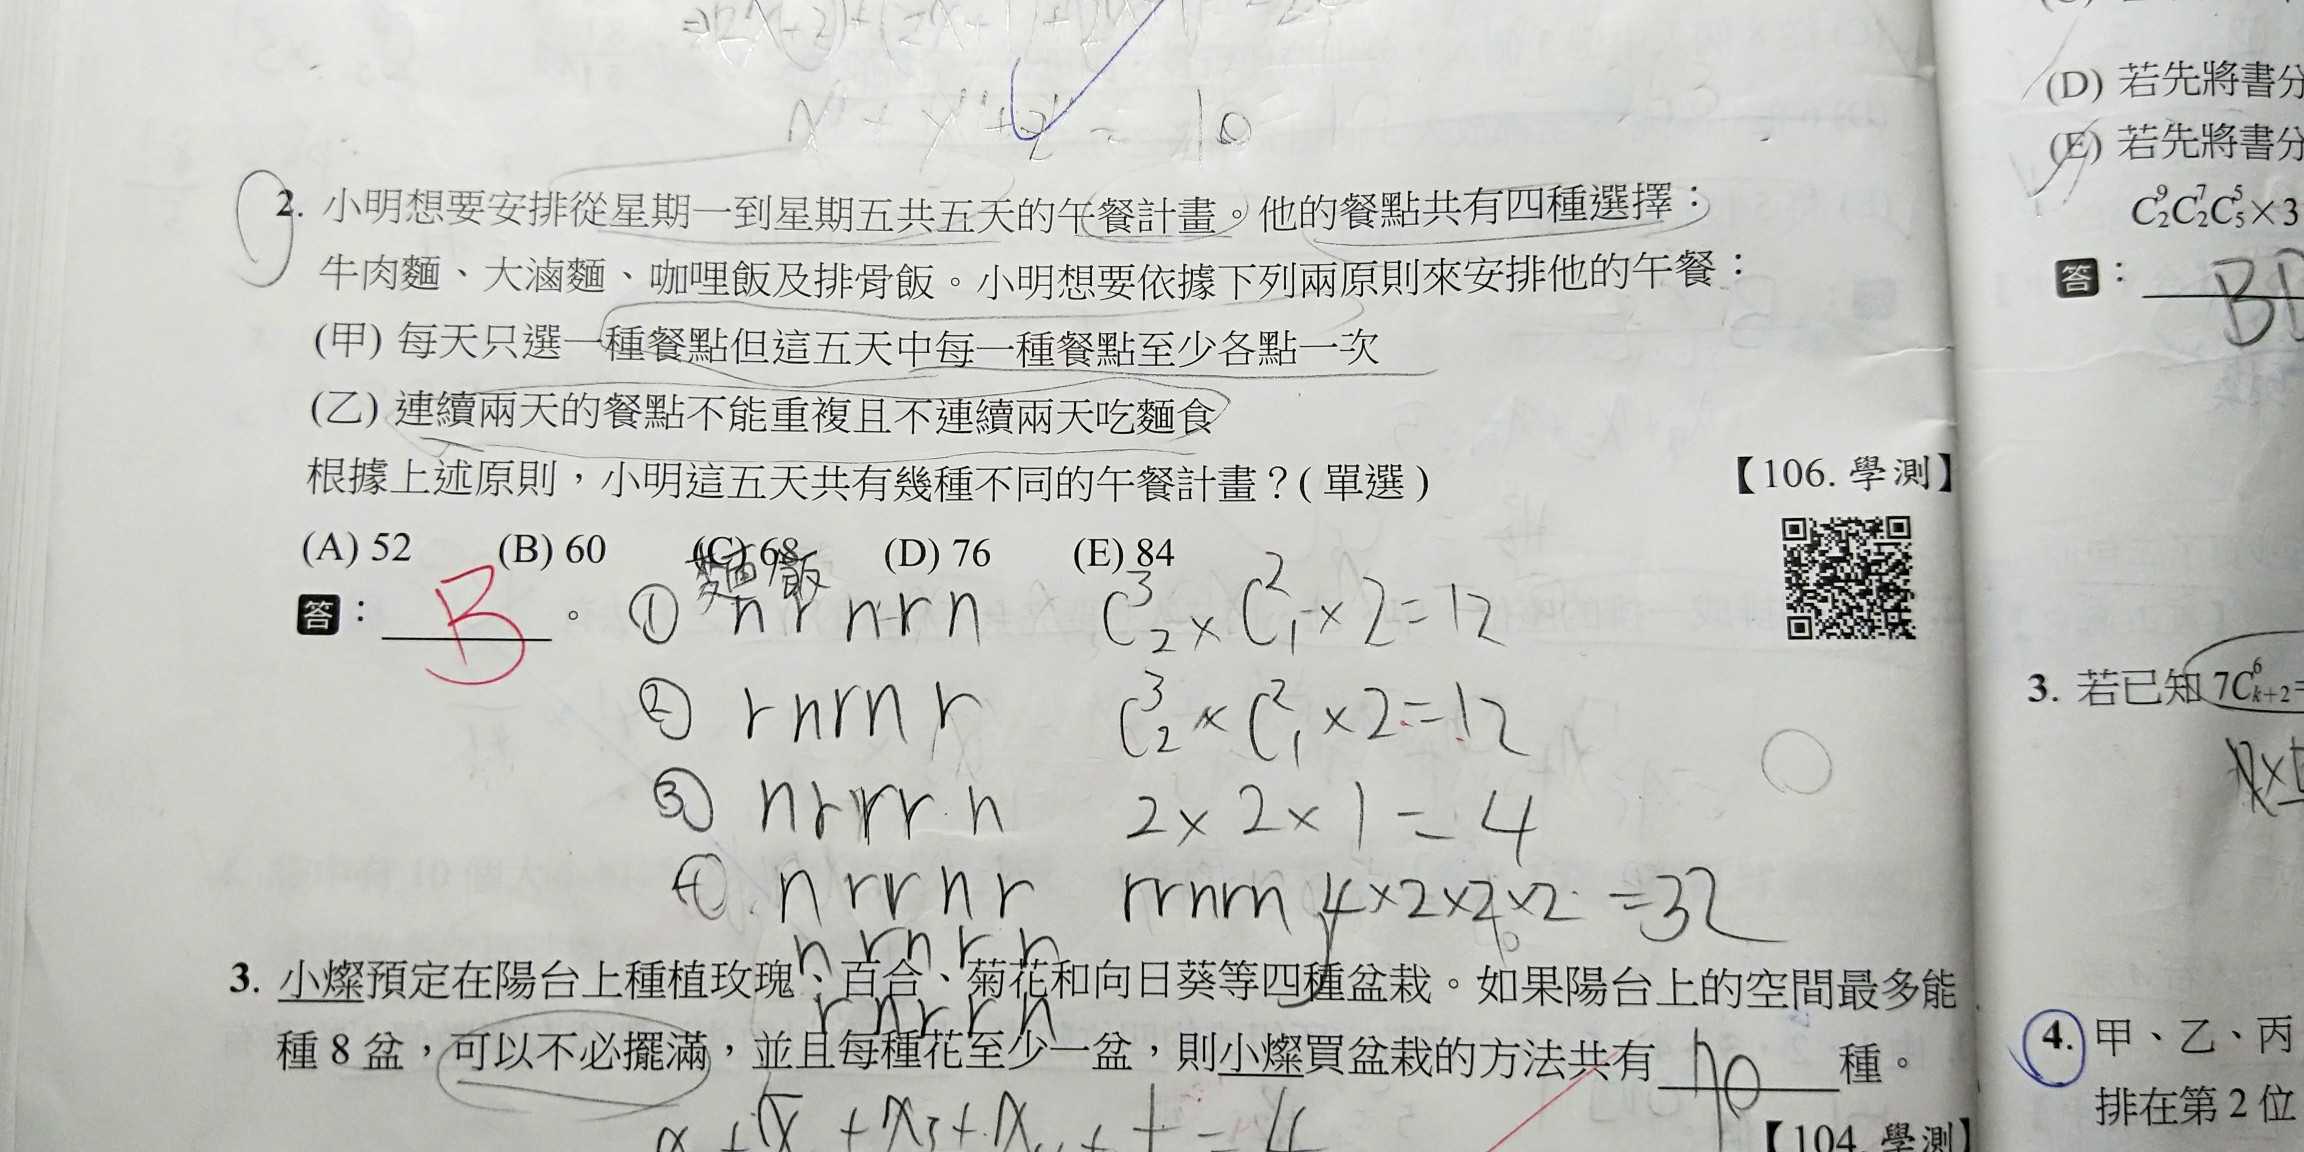 x + y + z = 10
2. 小明想要安排從星期一到星期五共五天的午餐計畫。他的餐點共有四種選擇：
牛肉麵、大滷麵、咖哩飯及排骨飯。小明想要依據下列兩原則來安排他的午餐：
(甲) 每天只選一種餐點但這五天中每一種餐點至少各點一次
(乙) 連續兩天的餐點不能重複且不連續兩天吃麵食
根據上述原則，小明這五天共有幾種不同的午餐計畫？( 單選 )
【106. 學測】
(A) 52 (B) 60 (C) 68 (D) 76 (E) 84
麵 飯
答： B 。 ① n r n r n C³₂ × C²₁ × 2 = 12
② r n r n r C³₂ × C²₁ × 2 = 12
③ n r r r n 2 × 2 × 1 = 4
④ n r r n r r r n r n 4 × 2 × 2 × 2 = 32
n r n r r
r n r r n
3. 小燦預定在陽台上種植玫瑰、百合、菊花和向日葵等四種盆栽。如果陽台上的空間最多能
種 8 盆，可以不必擺滿，並且每種花至少一盆，則小燦買盆栽的方法共有 70 種。
【104. 學測】
(D) 若先將書分
(E) 若先將書分
C⁹₂C⁷₂C⁵₅×3
答：
3. 若已知 7C⁶ₖ₊₂=
4. 甲、乙、丙
排在第 2 位